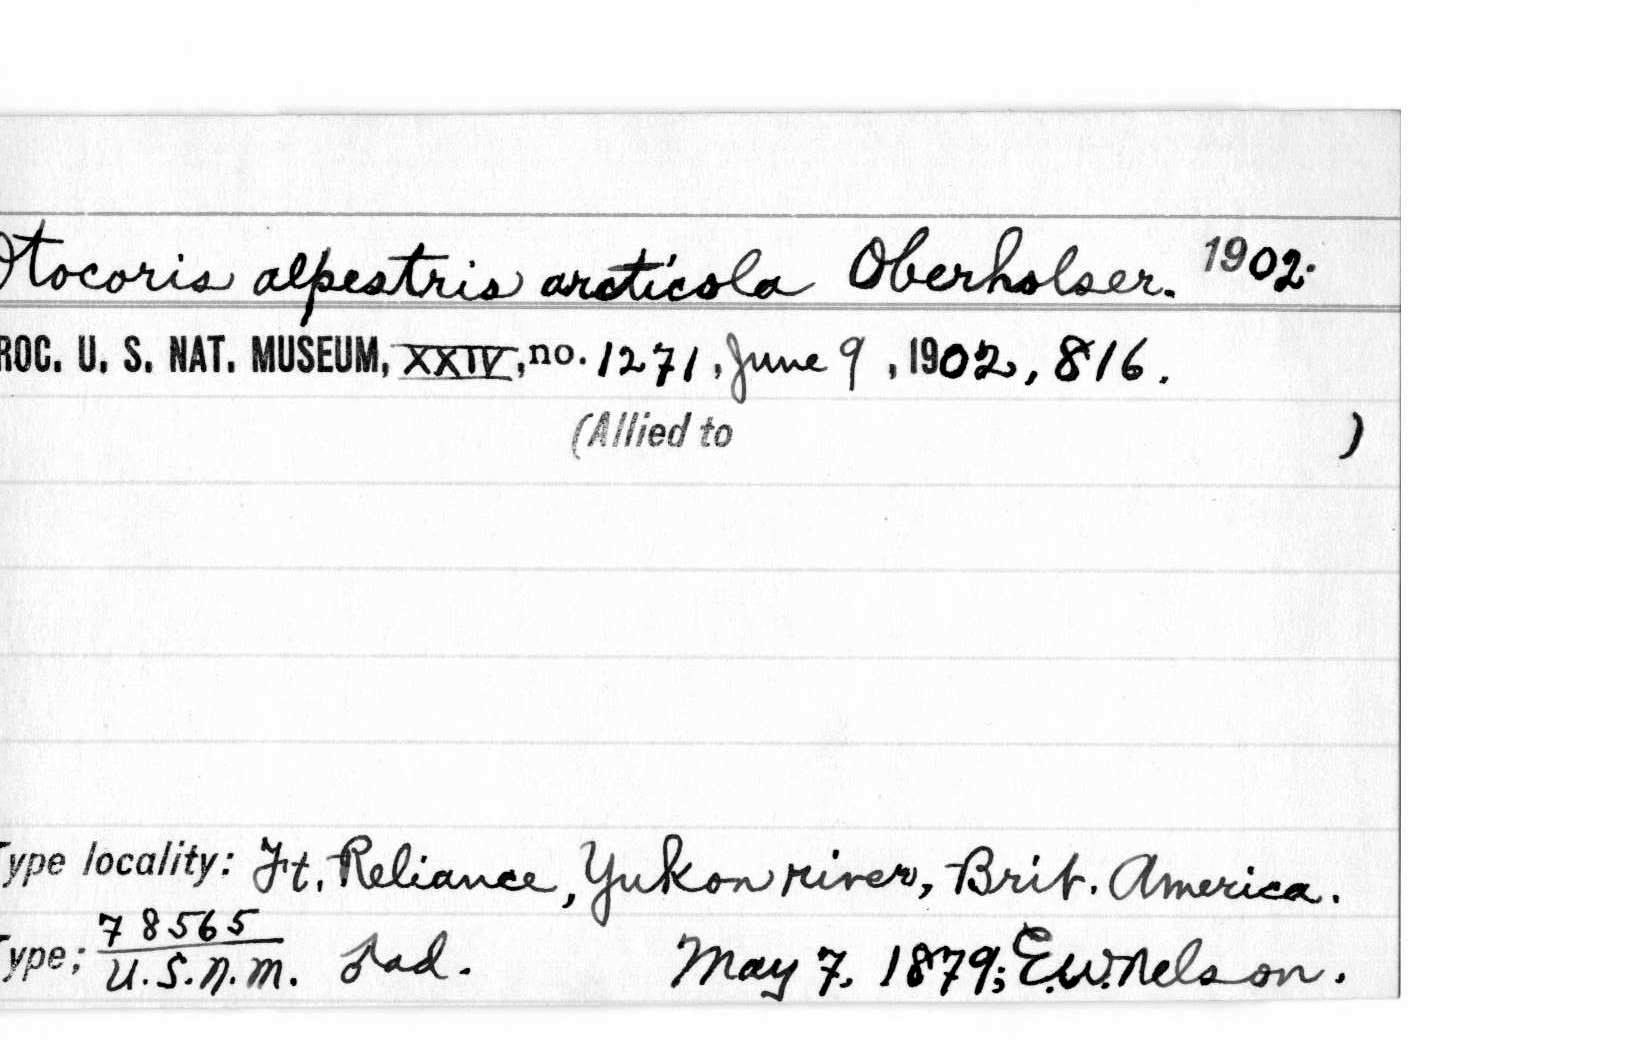 Otocoris alpestris arcticola Oberholser. 1902.
ROC. U. S. NAT. MUSEUM, XXIV, no. 1271, June 9, 1902, 816.
(Allied to )
Type locality: Ft. Reliance, Yukon river, Brit. America.
Type; 78565
U.S.N.M. ad. May 7, 1879; E.W. Nelson.